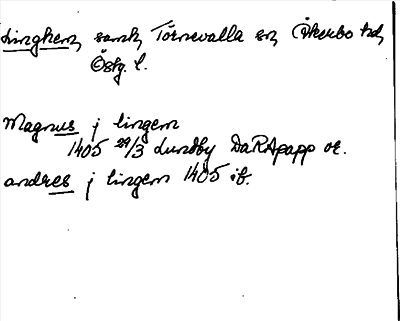 Linghem, samh, Törnevalla sn, Åkerbo hd,
Östg. l.
Magnus j lingem
1405 29/3 Lundby DaRApapp or.
andres j lingem 1405 ib.